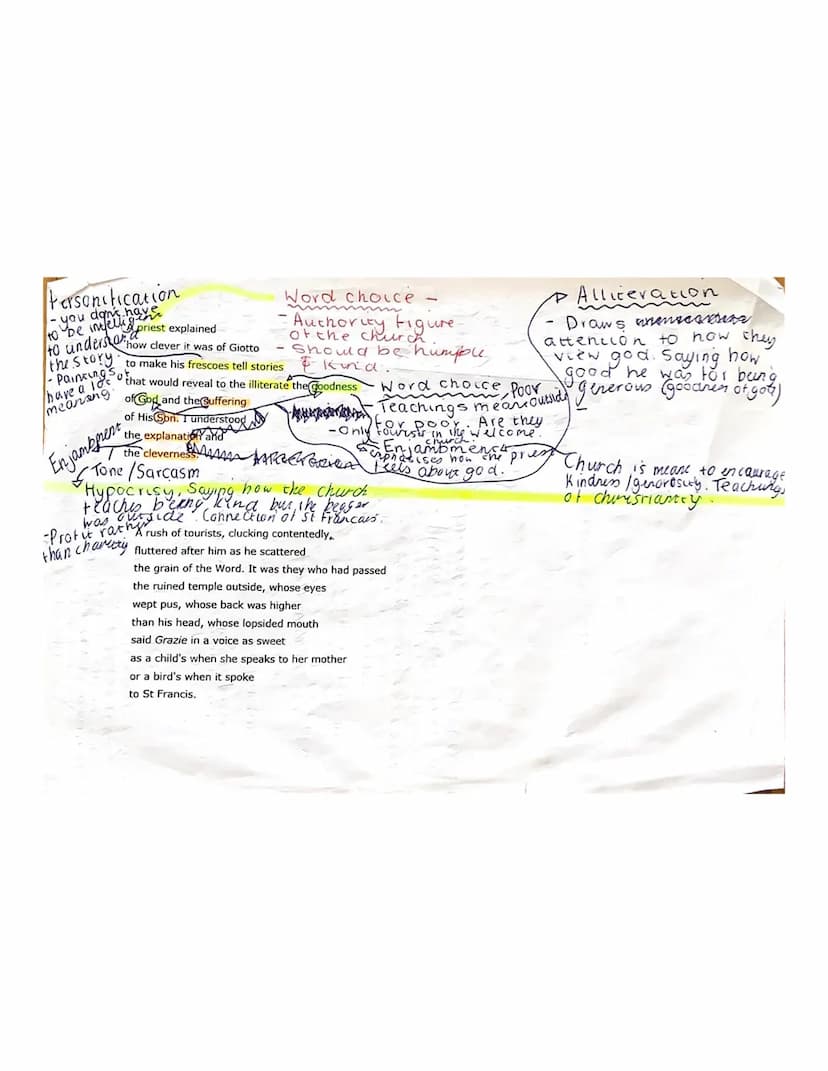 Personification
- you don't have
to be intelligent
to understand
the story.
- Paintings
have a lot of
meaning.
Word choice -
- Authority figure
of the church.
- Should be humble
& kind.
Alliteration
- Draws
attention to how they
view god. Saying how
good he was for being
generous (goodness of god)
A priest explained
how clever it was of Giotto
to make his frescoes tell stories
that would reveal to the illiterate the goodness
of God and the suffering
of His Son. I understood
the explanation and
the cleverness.
Word choice, Poor
outside
Teachings meant
for poor. Are they
- Only tourists in the welcome.
church.
Enjambment
- emphasises how the priest
feels about god.
Church is meant to encourage
kindness/generosity. Teachings
of christianity.
Enjambment
Tone/Sarcasm
Hypocrisy, Saying how the church
teaches being kind but the beggar
was outside. Connection of St Francais.
- Profit rather
than charity
A rush of tourists, clucking contentedly,
fluttered after him as he scattered
the grain of the Word. It was they who had passed
the ruined temple outside, whose eyes
wept pus, whose back was higher
than his head, whose lopsided mouth
said Grazie in a voice as sweet
as a child's when she speaks to her mother
or a bird's when it spoke
to St Francis.